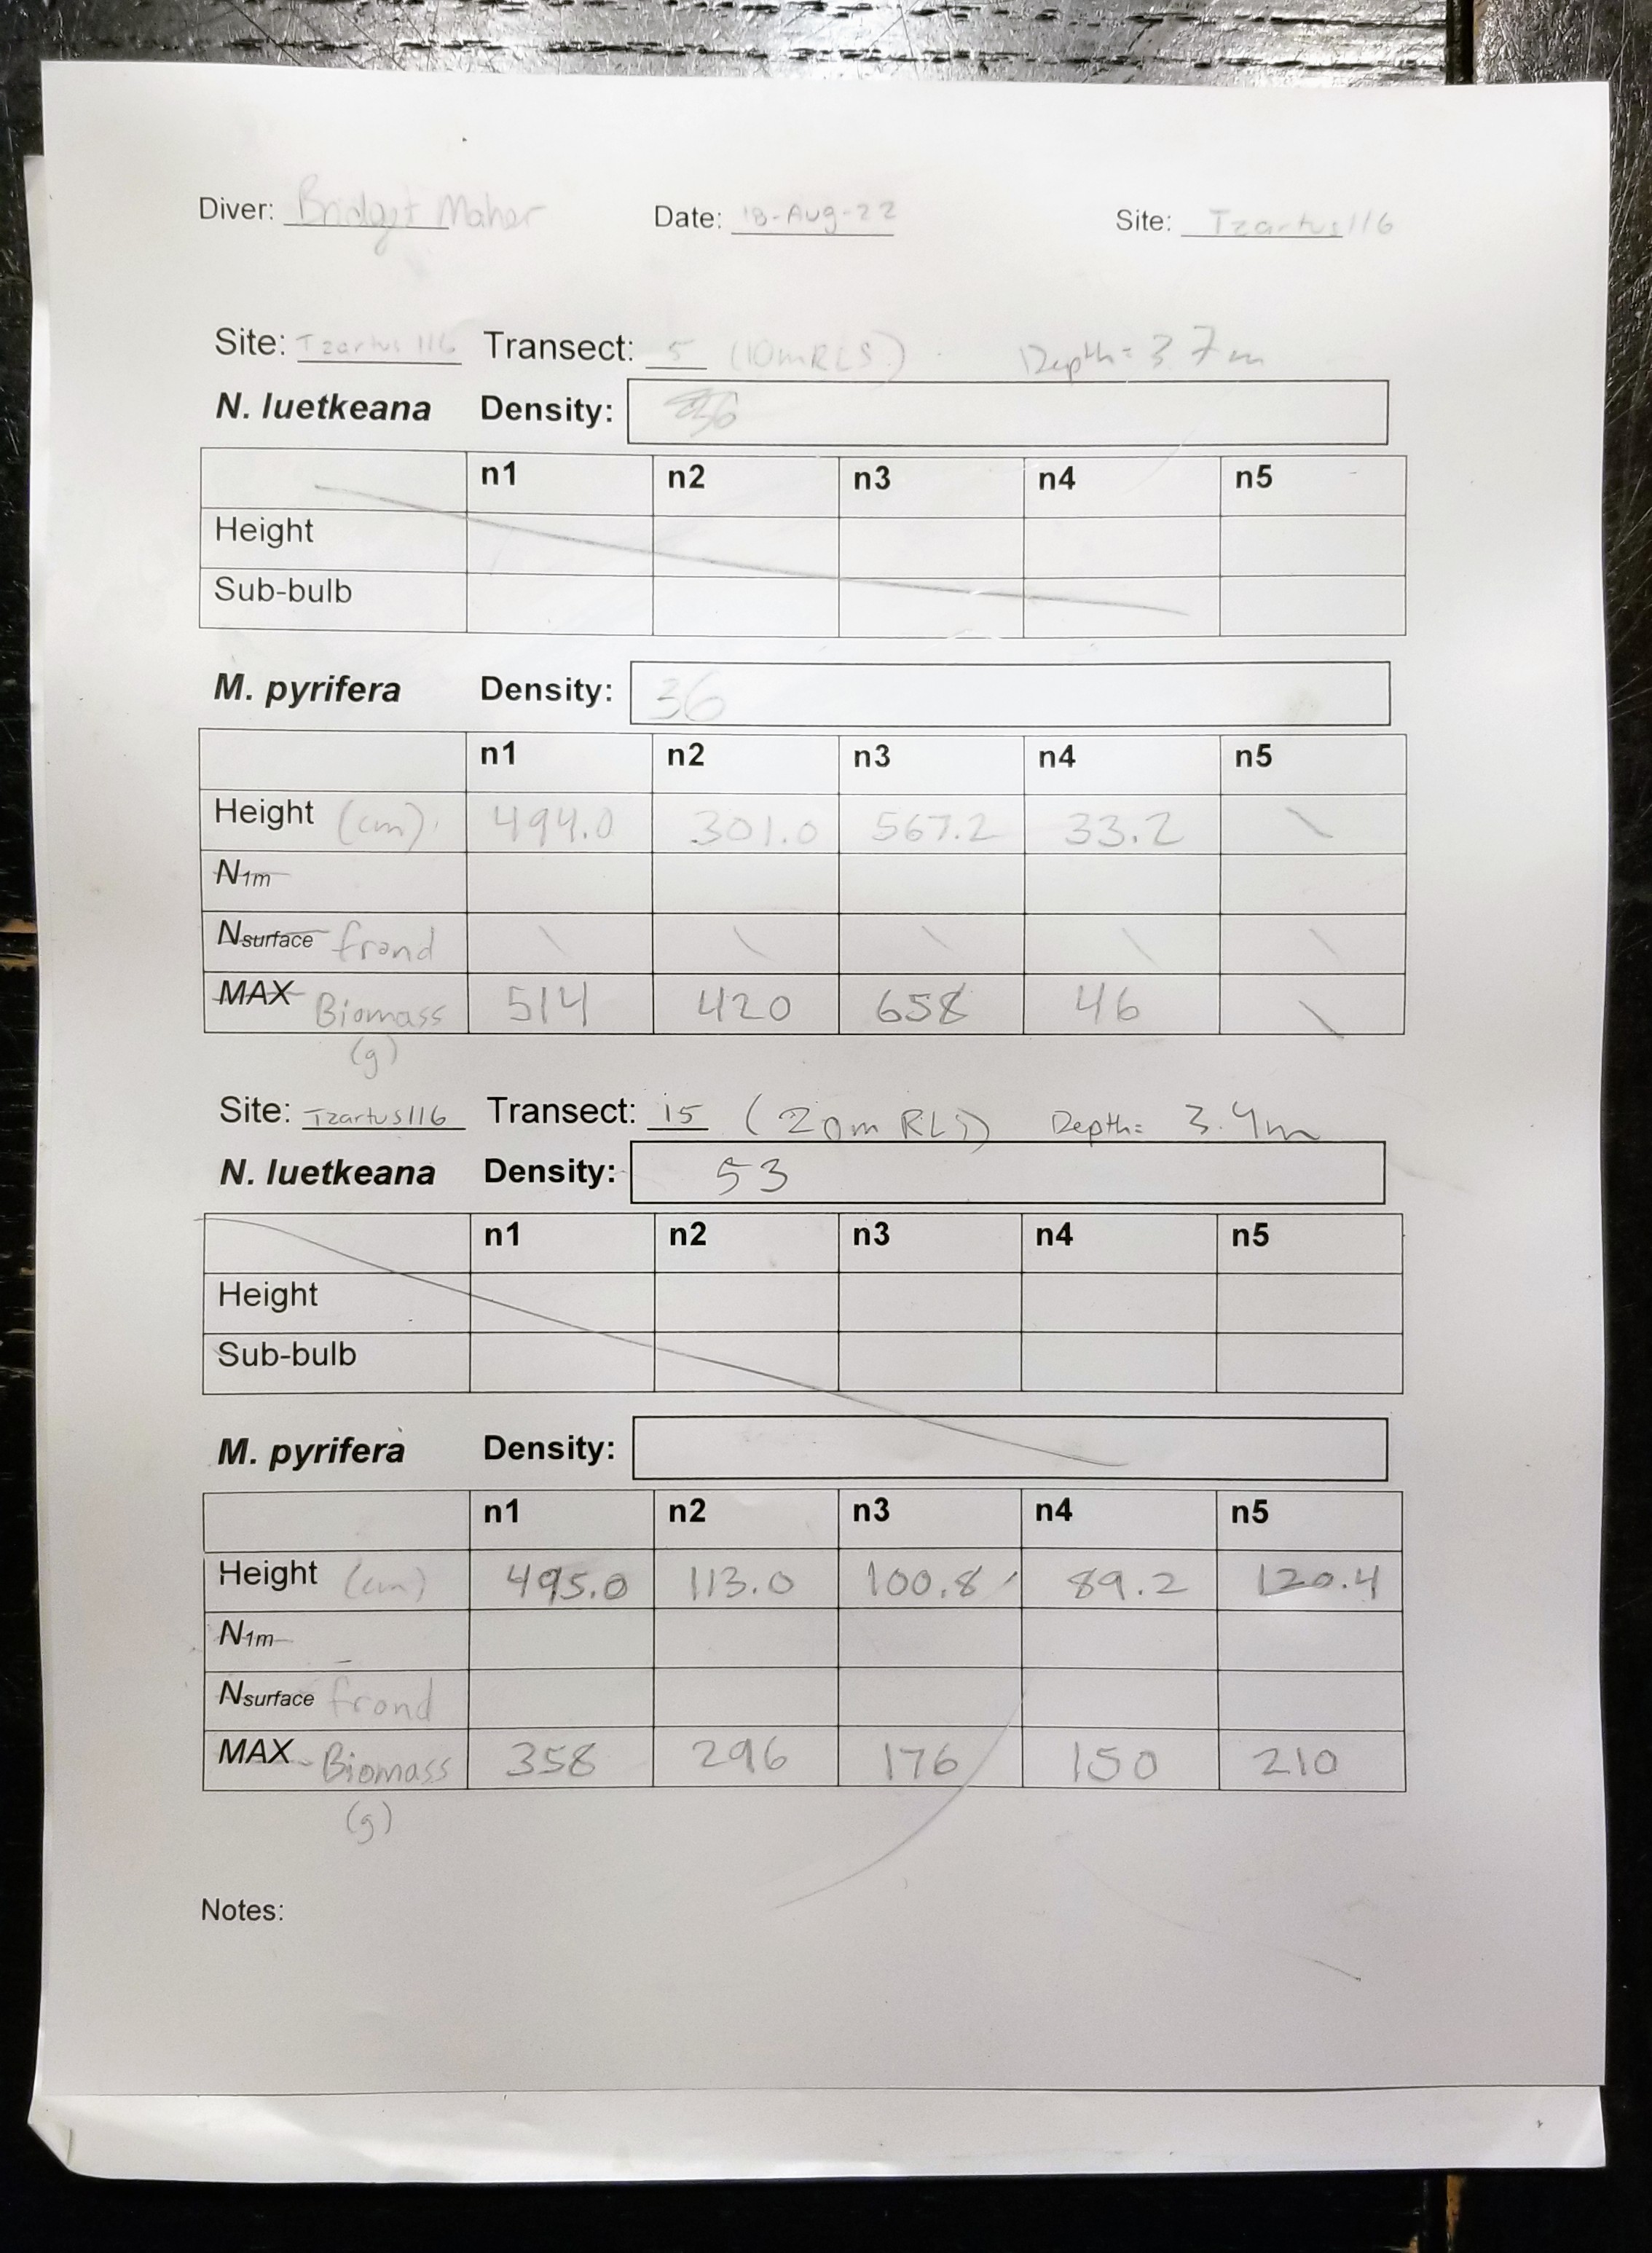 Diver: Bridget Maher Date: 18-Aug-22 Site: Tzartus 116
Site: Tzartus 116 Transect: 5 (10m RLS) Depth = 3.7m
N. luetkeana Density:
n1 n2 n3 n4 n5
Height
Sub-bulb
M. pyrifera Density: 36
n1 n2 n3 n4 n5
Height (cm) 494.0 301.0 567.2 33.2 \
N1m
Nsurface frond \ \ \ \ \
MAX Biomass 514 420 658 46 \
(g)
Site: Tzartus116 Transect: 15 (20m RLS) Depth= 3.4m
N. luetkeana Density: 53
n1 n2 n3 n4 n5
Height
Sub-bulb
M. pyrifera Density:
n1 n2 n3 n4 n5
Height (cm) 495.0 113.0 100.8 89.2 120.4
N1m
Nsurface frond
MAX Biomass 358 296 176 150 210
(g)
Notes: